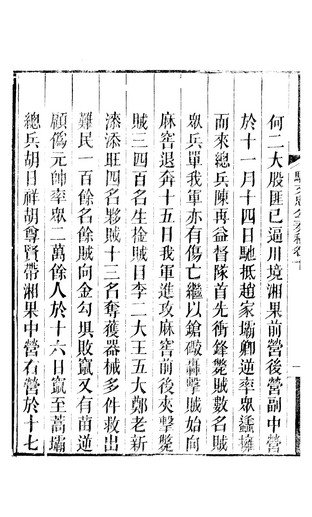 何二大股匪已逼川境湘果前營後營副中營
於十一月十四日馳抵趙家壩卿逆率眾蜂擁
而來總兵陳再益督隊首先衝鋒斃賊數名賊
眾兵單我軍亦有傷亡繼以鎗礮轟擊賊始向
麻窖退奔十五日我軍進攻麻窖前後夾擊斃
賊三四百名生擒賊目李二大王五大鄭老新
漆添旺四名夥賊十三名奪獲器械多件救出
難民一百餘名餘賊向金勾俱敗竄又有苗逆
顧僞元帥率眾二萬餘人於十六日竄至蒿壩
總兵胡日祥胡尊賢帶湘果中營右營於十七